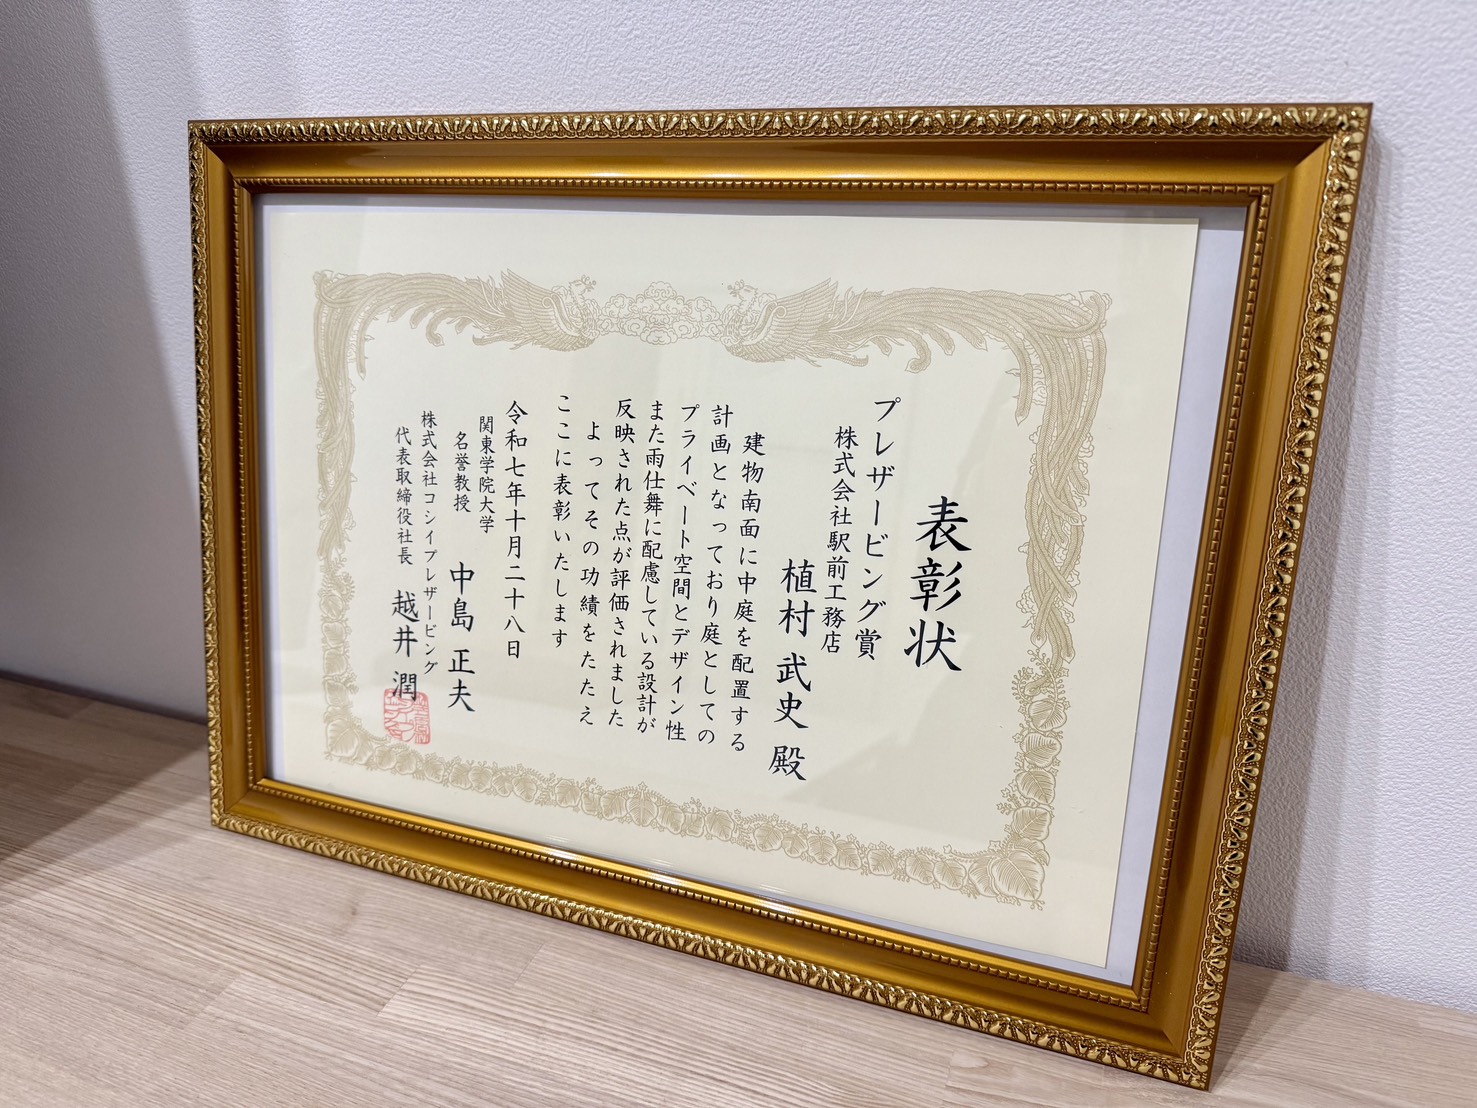 表彰状
プレザービング賞
株式会社駅前工務店
植村 武史 殿
建物南面に中庭を配置する
計画となっており庭としての
プライベート空間とデザイン性
また雨仕舞に配慮している設計が
反映された点が評価されました
よってその功績をたたえ
ここに表彰いたします
令和七年十月二十八日
関東学院大学
名誉教授 中島 正夫
株式会社コシイプレザービング
代表取締役社長 越井 潤